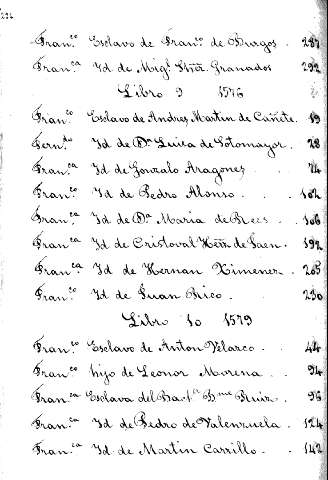 Fran.co Esclavo de Fran.co de Burgos . 287
Fran.ca Id de Mig.l Granados 292
Libro 9 1576
Fran.co Esclavo de Andres Martin de Cañete. 19
Fern.do Id de D.a Luisa de Sotomayor. 28
Fran.ca Id de Gonzalo Aragones . 74
Fran.co Id de Pedro Alonso . . 102
Fran.ca Id de D.a Maria de . 106
Fran.ca Id de Cristoval Hern de Jaen. 192
Fran.ca Id de Hernan Ximenez . 205
Fran.co Id de Juan Rico . . 230
Libro 10 1579
Fran.co Esclavo de Anton Velasco . . 44
Fran.co hijo de Leonor Morena . 94
Fran.ca Esclava del Ruiz . 96
Fran.ca Id de Pedro de Valenzuela . 124
Fran.ca Id de Martin Carrillo . . 142